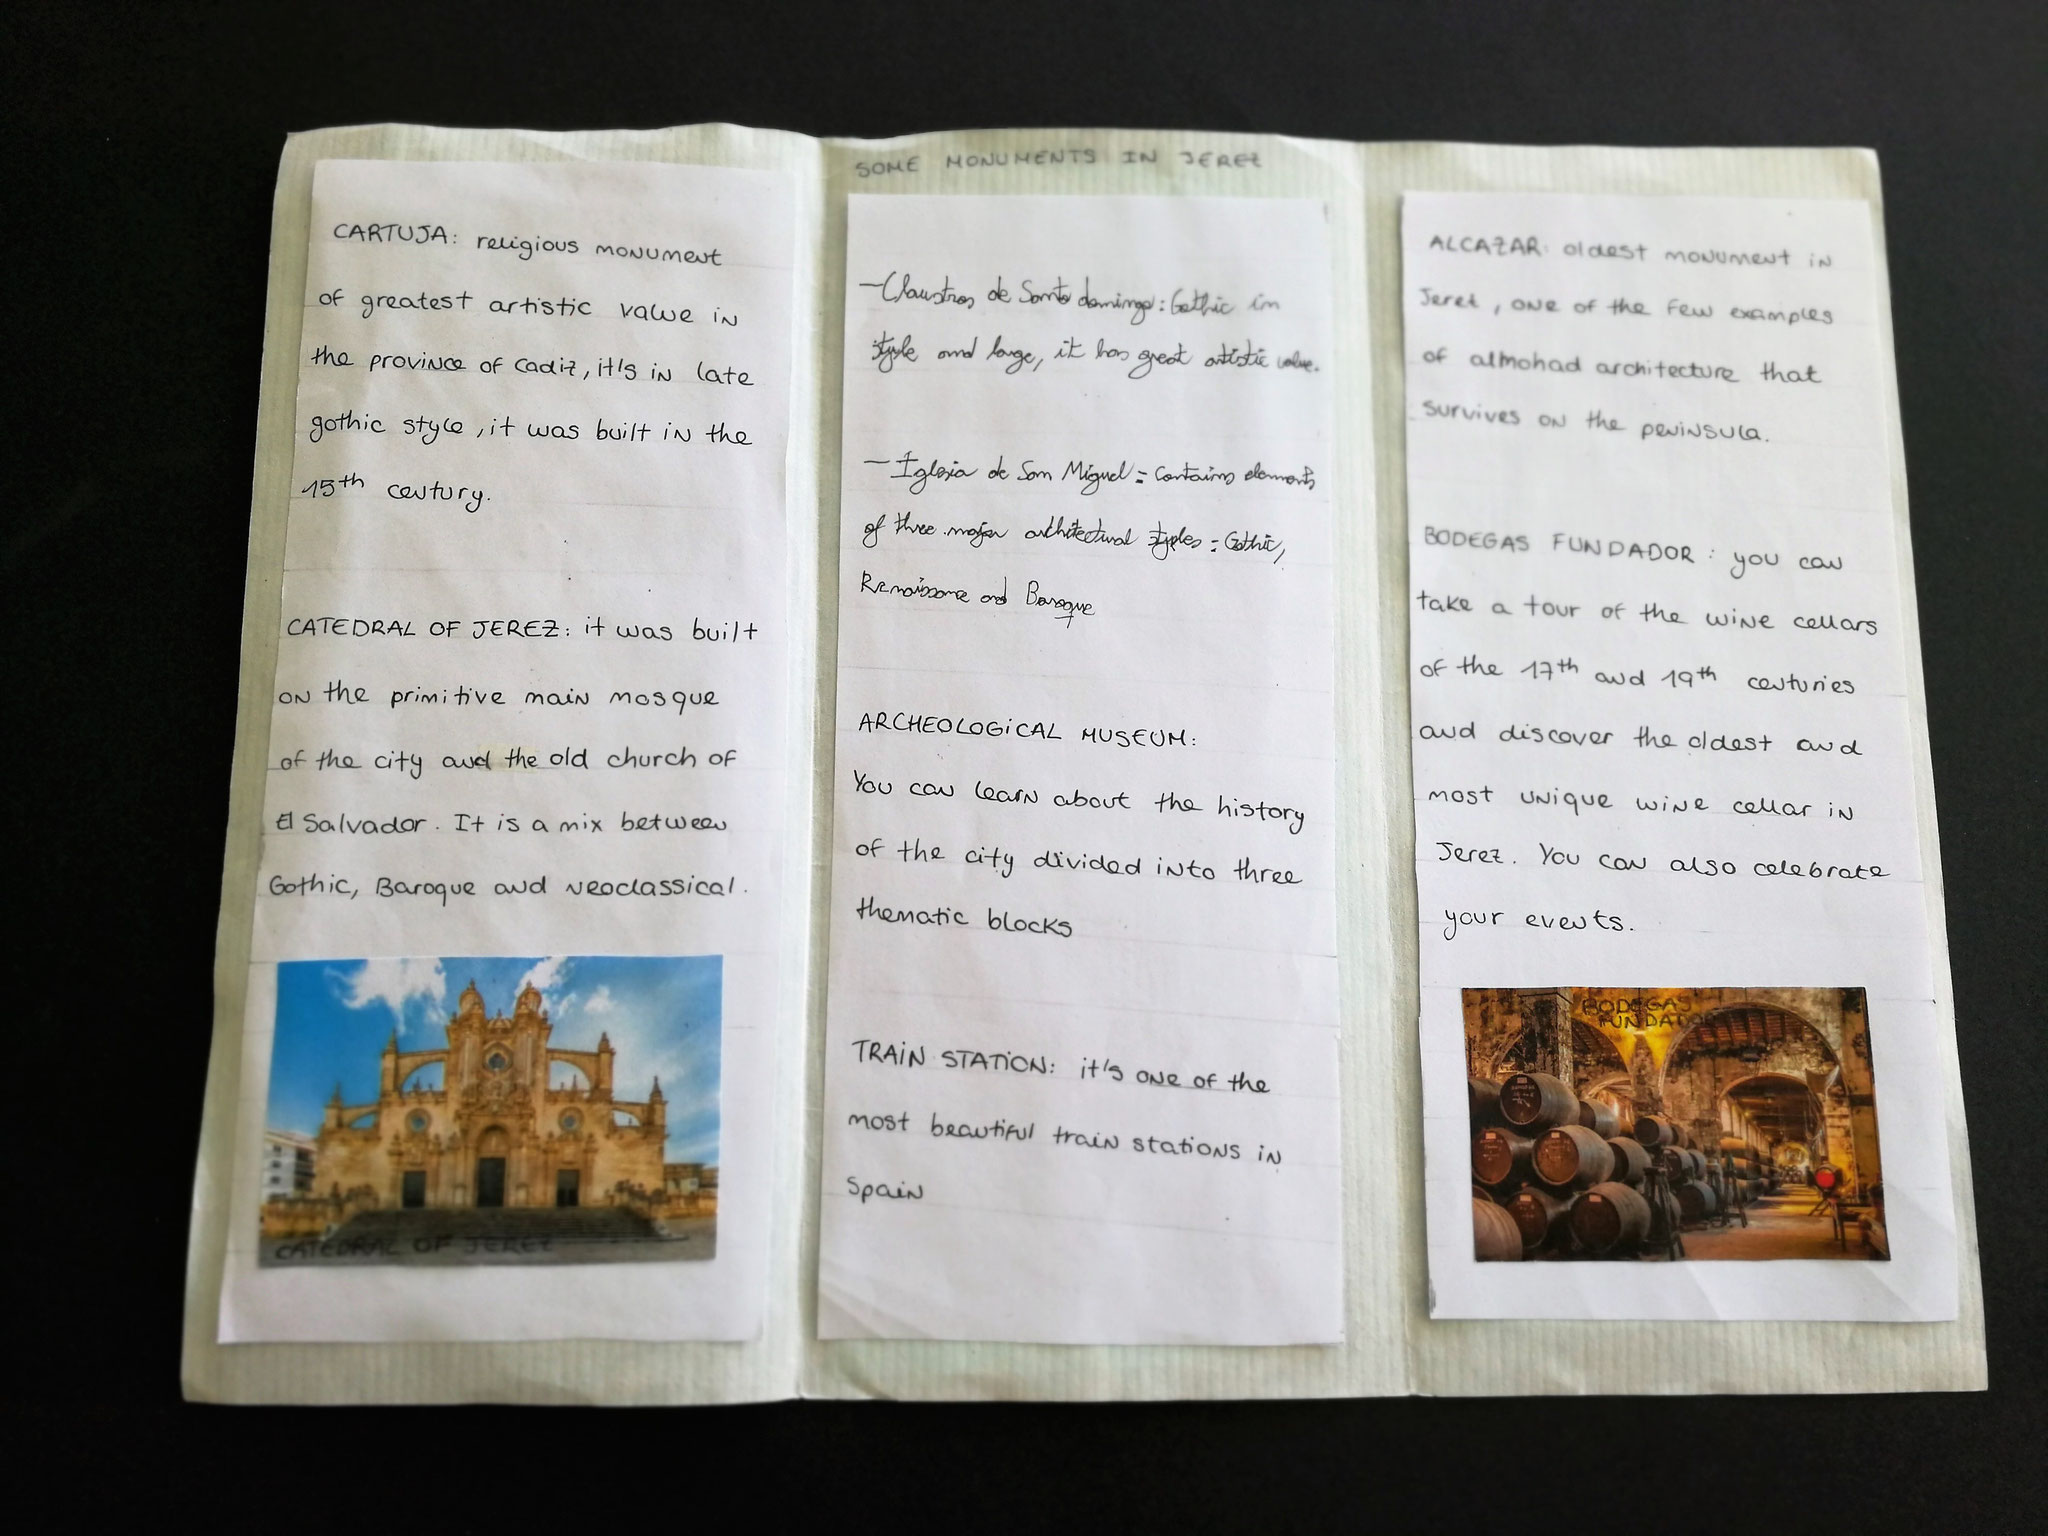 SOME MONUMENTS IN JEREZ
CARTUJA: religious monument
of greatest artistic value in
the province of Cadiz, it's in late
gothic style, it was built in the
15th century.
CATEDRAL OF JEREZ: it was built
on the primitive main mosque
of the city and the old church of
El Salvador. It is a mix between
Gothic, Baroque and neoclassical.
CATEDRAL OF JEREZ
- Claustros de Santo domingo: Gothic in
style and large, it has great artistic value.
- Iglesia de San Miguel = Contains elements
of three major architectural styles = Gothic,
Renaissance and Baroque
ARCHEOLOGICAL MUSEUM:
You can learn about the history
of the city divided into three
thematic blocks
TRAIN STATION: it's one of the
most beautiful train stations in
Spain
ALCAZAR: oldest monument in
Jerez, one of the few examples
of almohad architecture that
survives on the peninsula.
BODEGAS FUNDADOR: you can
take a tour of the wine cellars
of the 17th and 19th centuries
and discover the oldest and
most unique wine cellar in
Jerez. You can also celebrate
your events.
BODEGAS
FUNDADOR